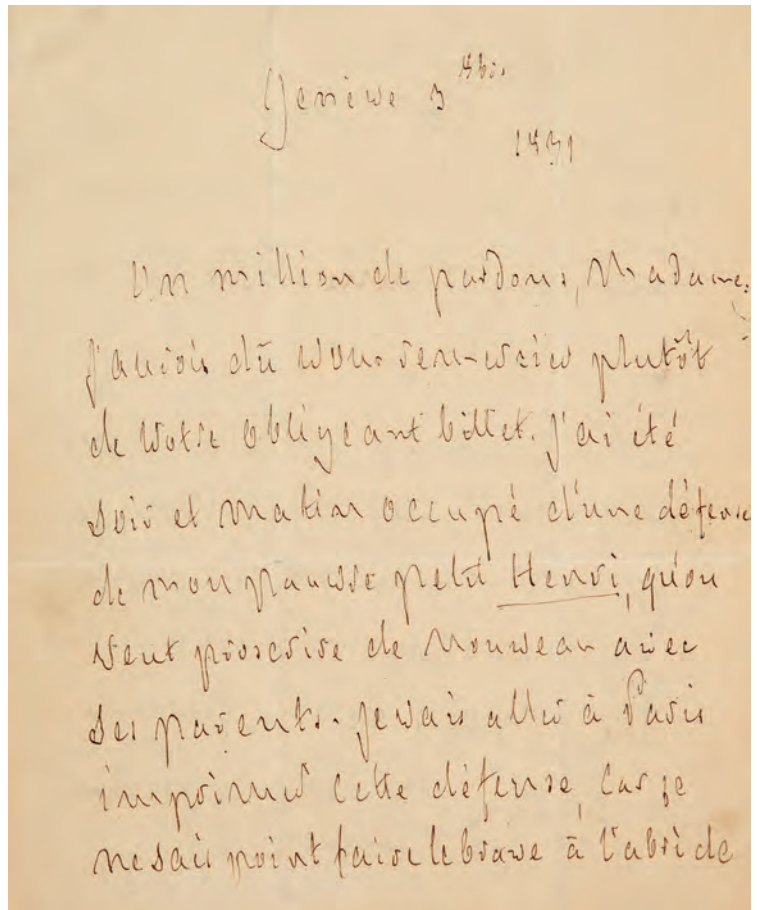 Genève 3 8bre
1831
Un million de pardons, Madame.
J'aurois dû vous remercier plutôt
de votre obligeant billet. J'ai été
soir et matin occupé d'une défense
de mon pauvre petit Henri, qu'on
veut proscrire de nouveau avec
ses parents. Je vais aller à Paris
imprimer cette défense, car je
ne sais point faire le brave à l'abri de